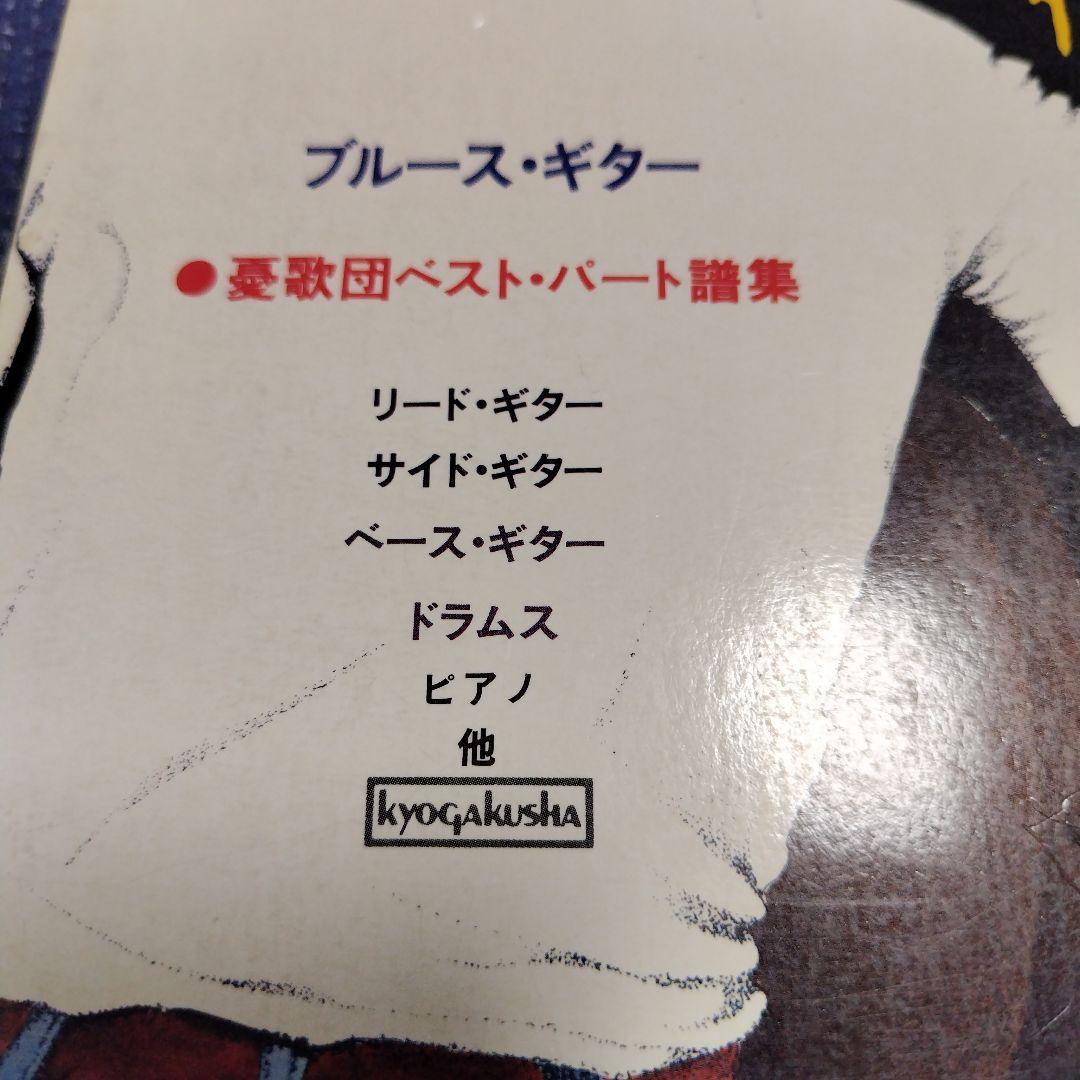 ブルース・ギター
●憂歌団ベスト・パート譜集
リード・ギター
サイド・ギター
ベース・ギター
ドラムス
ピアノ
他
kyogakusha